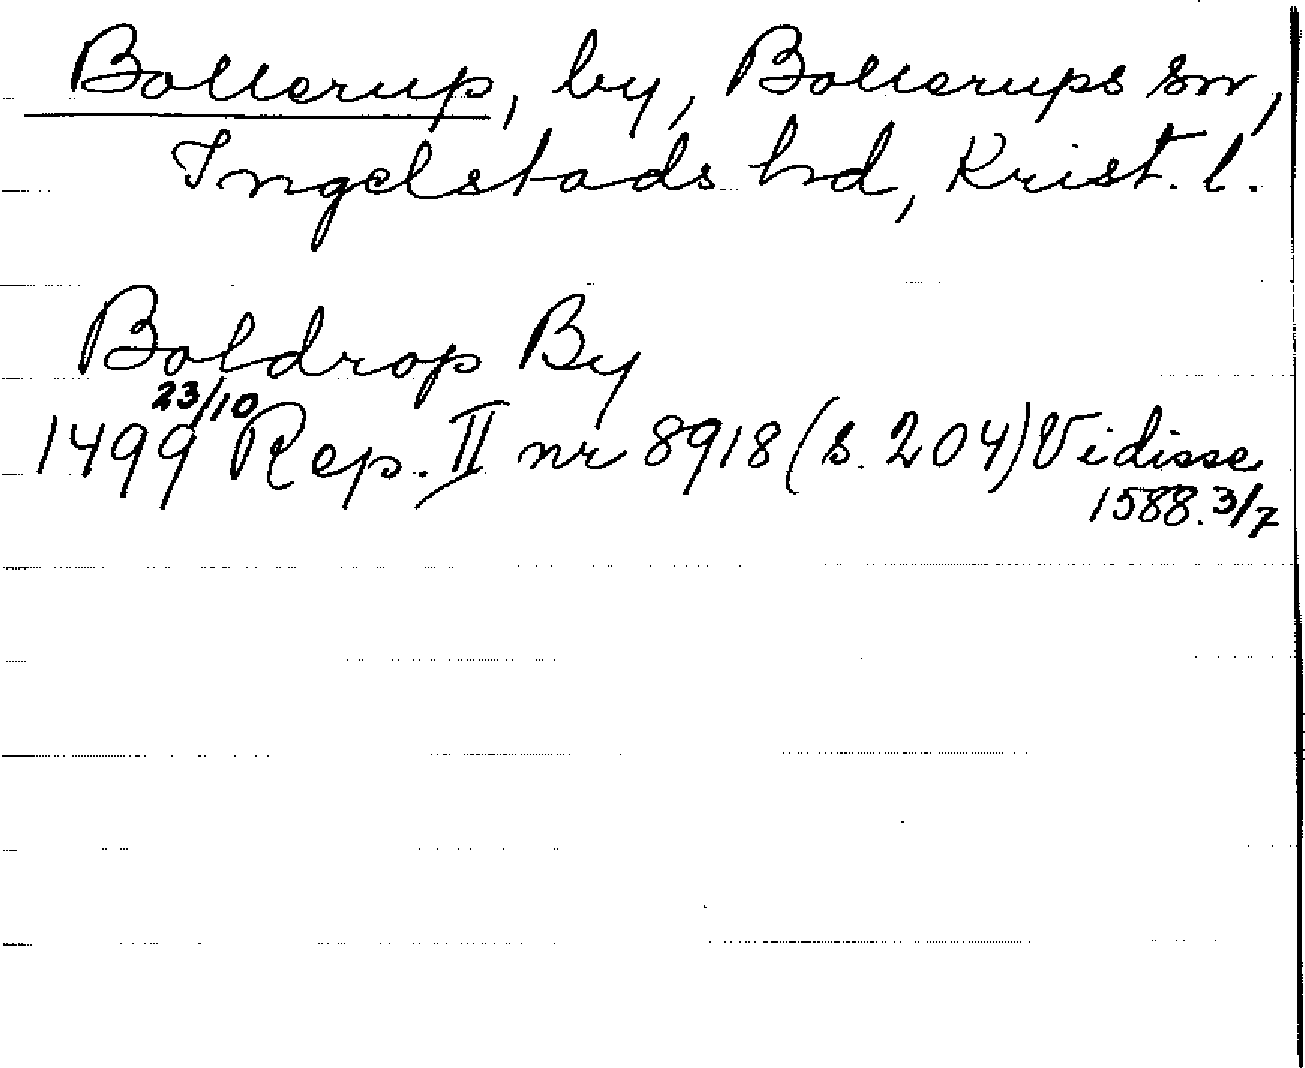 Bollerup, by, Bollerups sn,
Ingelstads hd, Krist. l.
Boldrop By
23/10
1499 Rep. II nr 8918 (s. 204) Vidisse
1588. 3/7